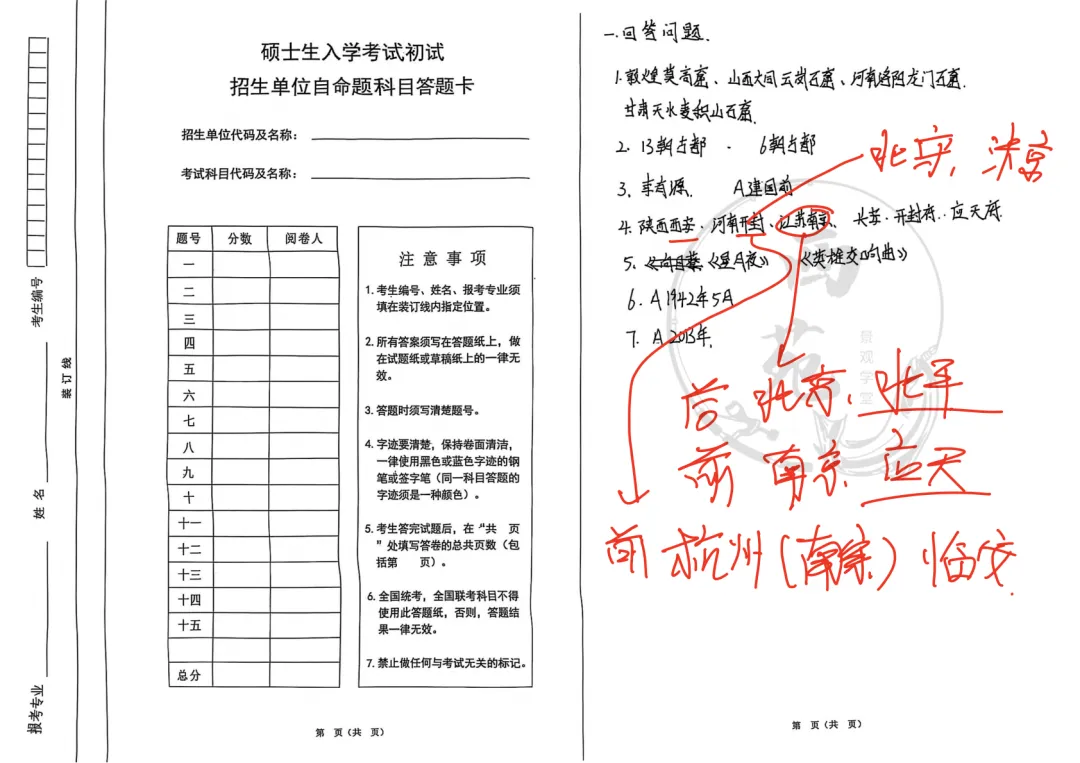 考生编号
姓名
报考专业
装订线
硕士生入学考试初试
招生单位自命题科目答题卡
招生单位代码及名称：
考试科目代码及名称：
题号 分数 阅卷人
一
二
三
四
五
六
七
八
九
十
十一
十二
十三
十四
十五
总分
注意事项
1. 考生编号、姓名、报考专业须
填在装订线内指定位置。
2. 所有答案须写在答题纸上，做
在试题纸或草稿纸上的一律无
效。
3. 答题时须写清楚题号。
4. 字迹要清楚，保持卷面清洁，
一律使用黑色或蓝色字迹的钢
笔或签字笔（同一科目答题的
字迹须是一种颜色）。
5. 考生答完试题后，在“共 页
”处填写答卷的总共页数（包
括第 页）。
6. 全国统考，全国联考科目不得
使用此答题纸，否则，答题结
果一律无效。
7. 禁止做任何与考试无关的标记。
第 页（共 页）
一.回答问题.
1.敦煌莫高窟、山西大同云岗石窟、河南洛阳龙门石窟.
甘肃天水麦积山石窟.
2. 13朝古都 . 6朝古都
北京,
3. 李有源. A建国前
4.陕西西安.河南开封、江苏南京、长安.开封府..应天府.
5.《向日葵》《星月夜》 《英雄交响曲》
6. A1942年5A
7. A 2013年.
景观学堂
北京、北平
南京 应天
杭州(南宋)临安
第 页（共 页）